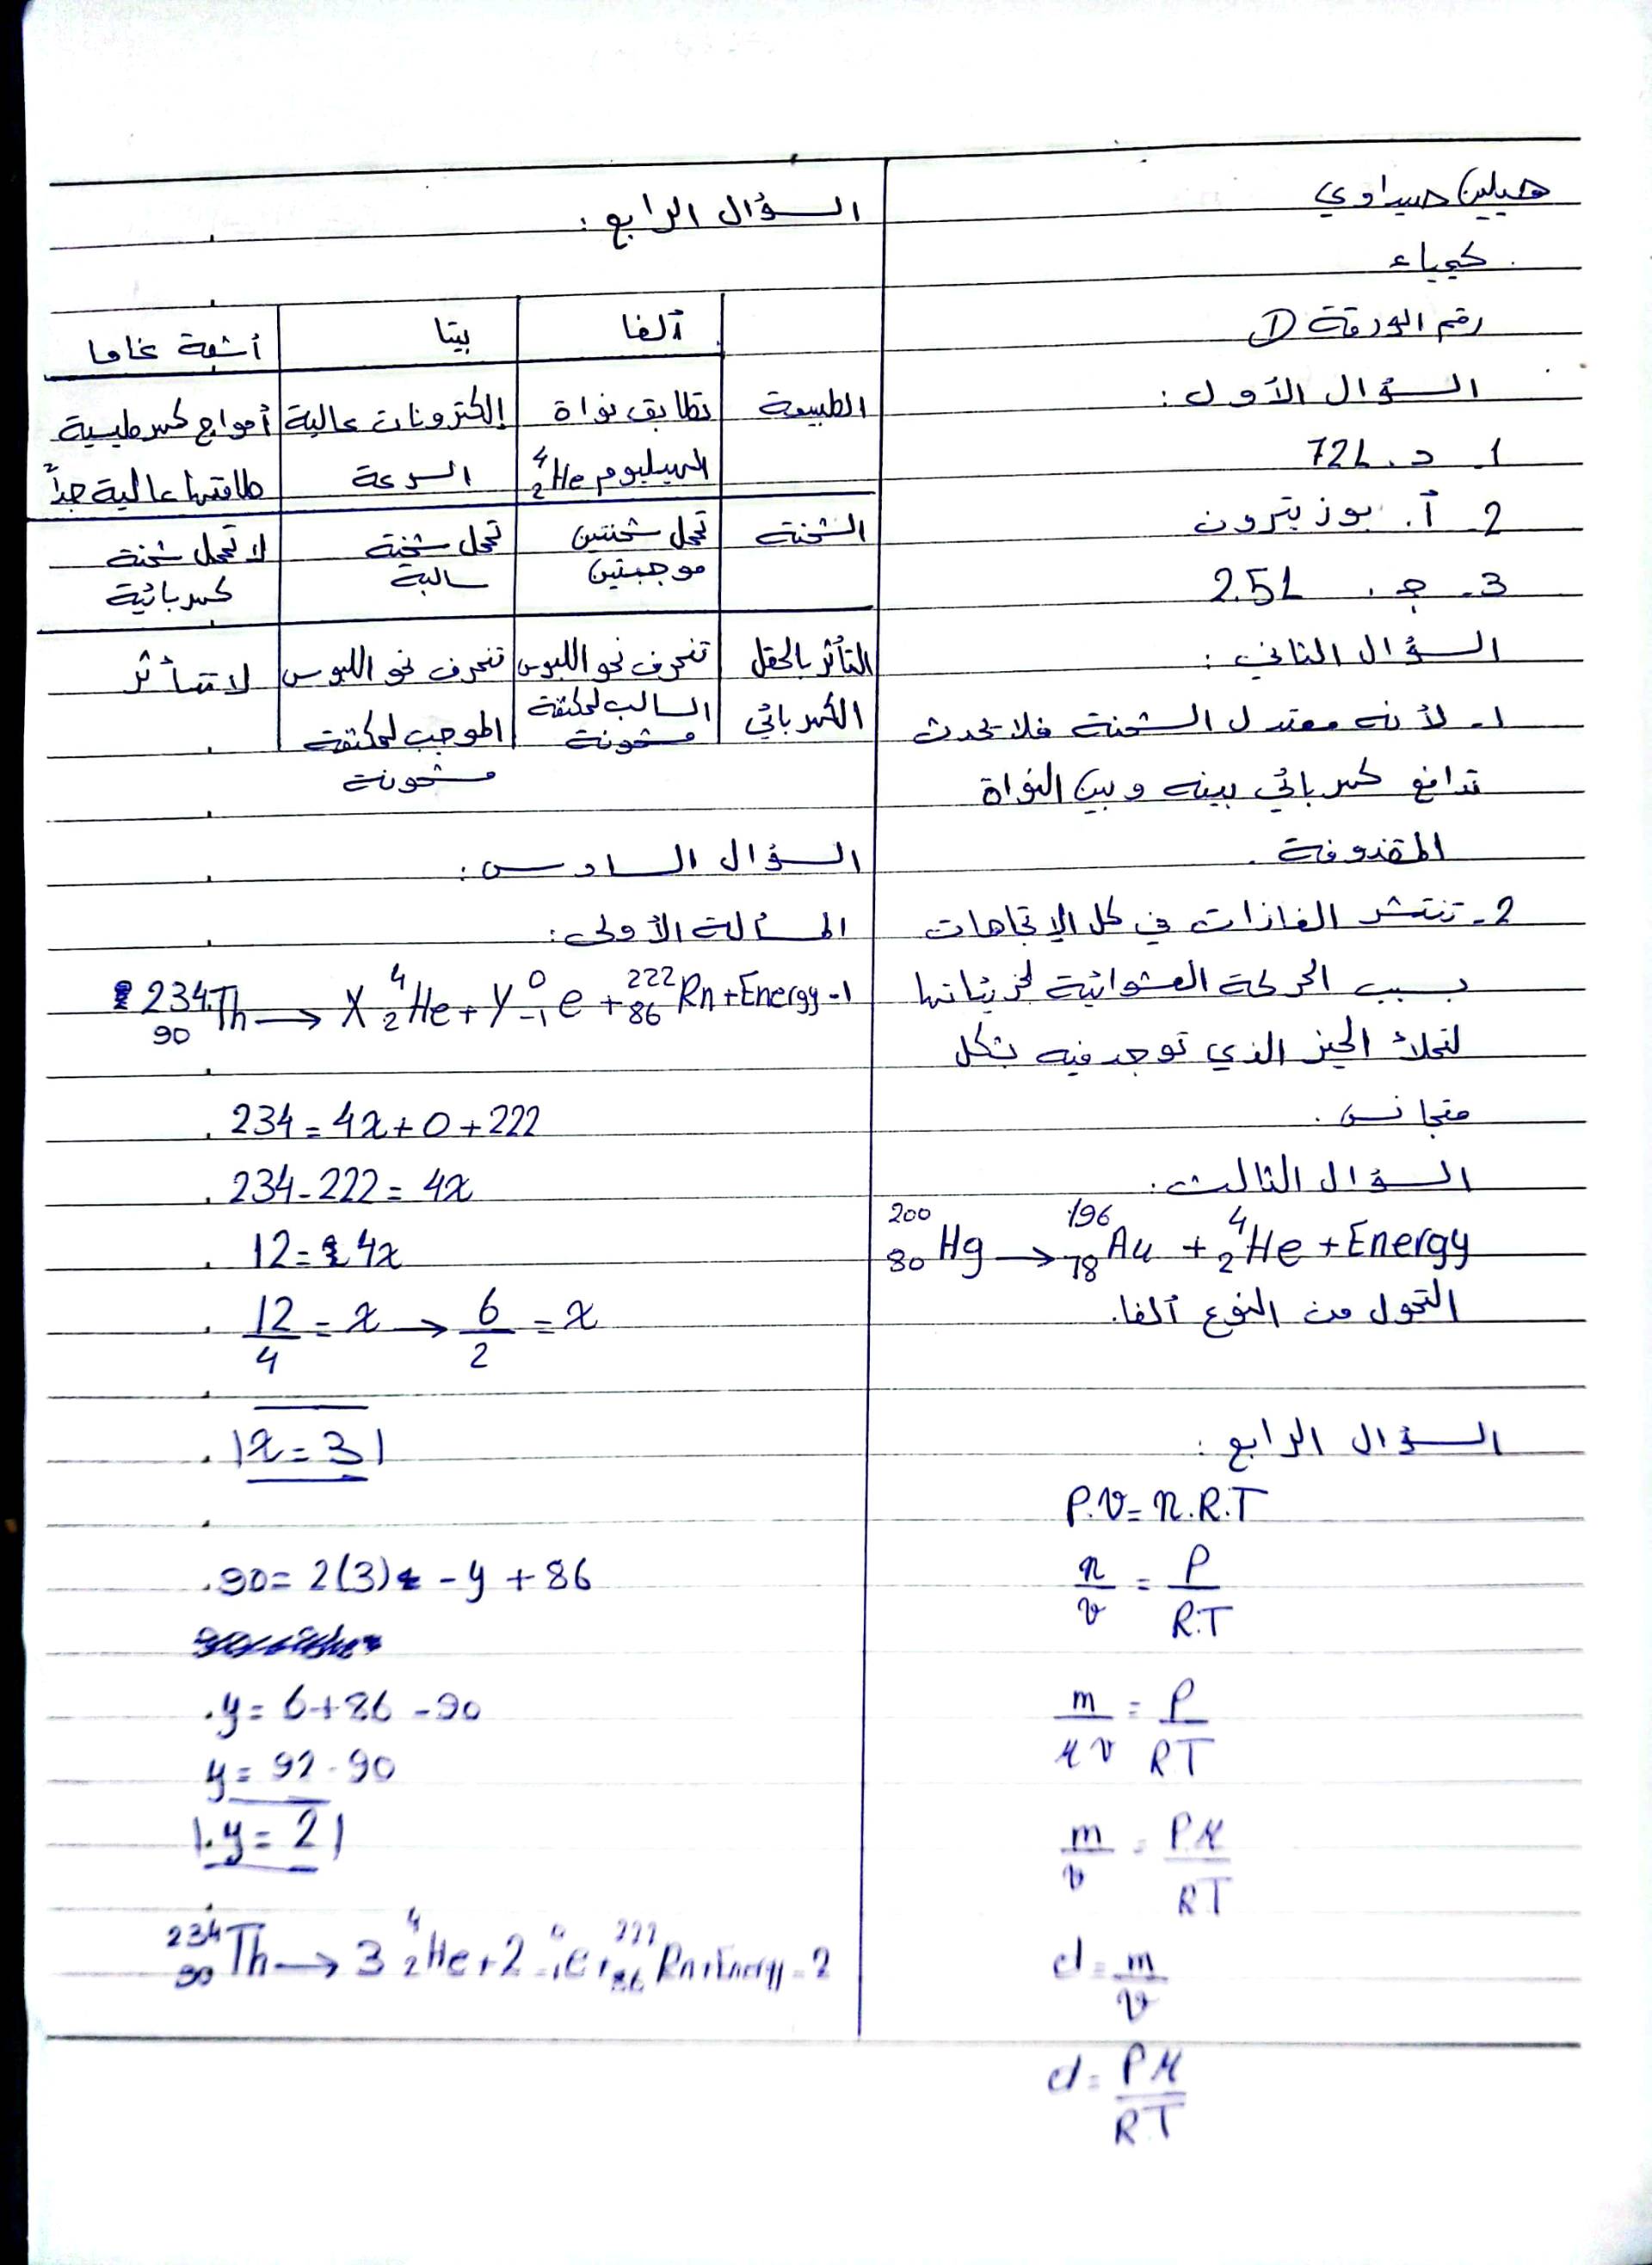 هيلين صيداوي
كيمياء
رقم الورقة ①
السؤال الأول:
1- د. 72L
2- أ. بوزيترون
3- ج. 2.5L
السؤال الثاني:
1- لأنه معتدل الشحنة فلا يحدث
تدافع كهربائي بينه وبين النواة
المقذوفة.
2- تنتشر الغازات في كل الإتجاهات
بسبب الحركة العشوائية لجزيئاتها
لتملأ الحيز الذي توجد فيه بشكل
متجانس.
السؤال الثالث:
²⁰⁰₈₀Hg → ¹⁹⁶₇₈Au + ⁴₂He + Energy
التحول من النوع ألفا.
السؤال الرابع:
P.V = n.R.T
n/v = P/R.T
m/Mv = P/RT
m/v = PM/RT
d = m/v
d = PM/RT
السؤال الرابع:
ألفا بيتا أشعة غاما
الطبيعة تطابق نواة الهيليوم ⁴₂He إلكترونات عالية السرعة أمواج كهرطيسية طاقتها عالية جداً
الشحنة تحمل شحنتين موجبتين تحمل شحنة سالبة لا تحمل شحنة كهربائية
التأثر بالحقل الكهربائي تنحرف نحو اللبوس السالب لمكثفة مشحونة تنحرف نحو اللبوس الموجب لمكثفة مشحونة لا تتأثر
السؤال السادس:
المسألة الأولى:
1- ²³⁴₉₀Th → X ⁴₂He + Y ⁰₋₁e + ²²²₈₆Rn + Energy
234 = 4x + 0 + 222
234 - 222 = 4x
12 = 4x
12/4 = x → 6/2 = x
x = 3
90 = 2(3) - y + 86
y = 6 + 86 - 90
y = 92 - 90
y = 2
2- ²³⁴₉₀Th → 3 ⁴₂He + 2 ⁰₋₁e + ²²²₈₆Rn + Energy